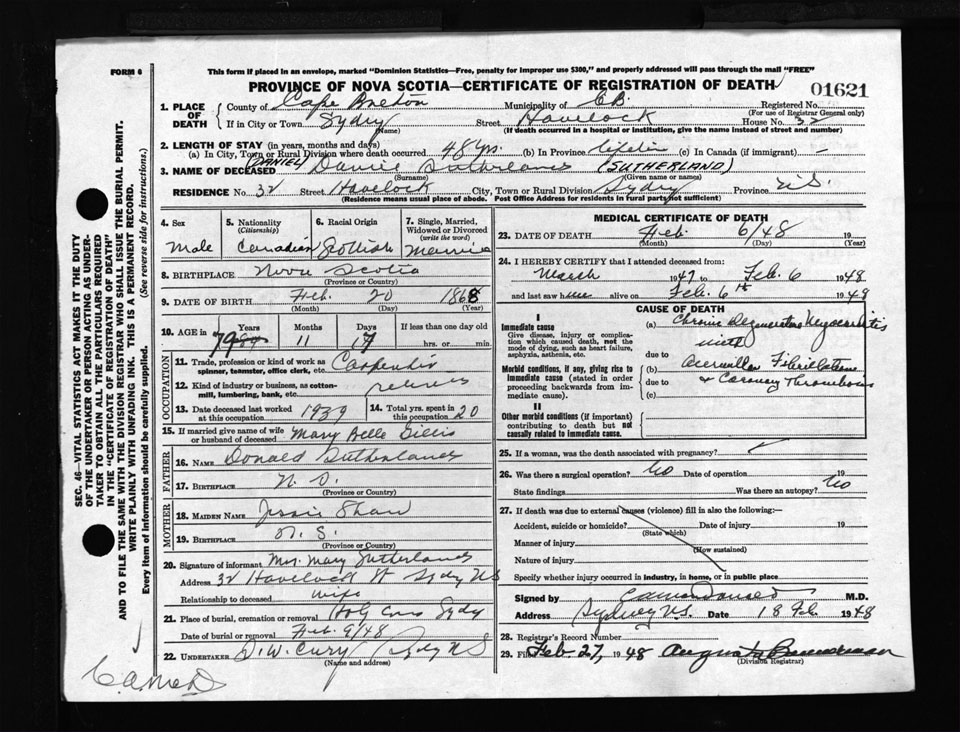 FORM 6
This form if placed in an envelope, marked "Dominion Statistics—Free, penalty for improper use $300," and properly addressed will pass through the mail "FREE"
PROVINCE OF NOVA SCOTIA—CERTIFICATE OF REGISTRATION OF DEATH
01621
1. PLACE OF DEATH
County of Cape Breton Municipality of C.B. Registered No.
(For use of Registrar General only)
If in City or Town Sydney Street Havelock House No. 32
(Name) (If death occurred in a hospital or institution, give the name instead of street and number)
2. LENGTH OF STAY (in years, months and days)
(a) In City, Town or Rural Division where death occurred 48 yrs. (b) In Province (c) In Canada (if immigrant) —
(DANIEL) (SUTHERLAND)
3. NAME OF DECEASED Daniel Sutherland
(Surname) (Given name or names)
RESIDENCE No. 32 Street Havelock City, Town or Rural Division Sydney Province N.S.
(Residence means usual place of abode. Post Office Address for residents in rural parts not sufficient)
4. Sex Male
5. Nationality (Citizenship) Canadian
6. Racial Origin Scottish
7. Single, Married, Widowed or Divorced (write the word) Married
8. BIRTHPLACE Nova Scotia
(Province or Country)
9. DATE OF BIRTH Feb. 20 1868
(Month) (Day) (Year)
10. AGE in Years Months Days If less than one day old
79 11 17 hrs. or min.
OCCUPATION
11. Trade, profession or kind of work as spinner, teamster, office clerk, etc. Carpenter
12. Kind of industry or business, as cotton-mill, lumbering, bank, etc.
13. Date deceased last worked at this occupation 1939
14. Total yrs. spent in this occupation 20
15. If married give name of wife or husband of deceased Mary Belle Gillis
FATHER
16. NAME Donald Sutherland
17. BIRTHPLACE N.S.
(Province or Country)
MOTHER
18. MAIDEN NAME Jessie Shaw
19. BIRTHPLACE N.S.
(Province or Country)
20. Signature of informant Mrs. Mary Sutherland
Address 32 Havelock St Sydney NS
Relationship to deceased wife
21. Place of burial, cremation or removal Holy Cross Sydney
Date of burial or removal Feb. 9/48
22. UNDERTAKER D.W. Curry Sydney N S
(Name and address)
MEDICAL CERTIFICATE OF DEATH
23. DATE OF DEATH Feb. 6/48 19
(Month) (Day) (Year)
24. I HEREBY CERTIFY that I attended deceased from:
March 1947 to Feb. 6 1948
and last saw him alive on Feb. 6th 1948
CAUSE OF DEATH
I
Immediate cause
Give disease, injury or complication which caused death, not the mode of dying, such as heart failure, asphyxia, asthenia, etc.
(a) Chronic Degenerative Myocarditis
with
due to
Morbid conditions, if any, giving rise to immediate cause (stated in order proceeding backwards from immediate cause).
(b) Auricular Fibrillation
due to & Coronary Thrombosis
(c)
II
Other morbid conditions (if important) contributing to death but not causally related to immediate cause.
25. If a woman, was the death associated with pregnancy?
26. Was there a surgical operation? No Date of operation 19
State findings Was there an autopsy? No
27. If death was due to external causes (violence) fill in also the following:—
Accident, suicide or homicide? Date of injury 19
(State which)
Manner of injury
(How sustained)
Nature of injury
Specify whether injury occurred in industry, in home, or in public place
Signed by M.D.
Address Sydney N.S. Date 18 Feb. 1948
28. Registrar's Record Number
29. Filed Feb. 27, 1948
(Division Registrar)
SEC. 46—VITAL STATISTICS ACT MAKES IT THE DUTY
OF THE UNDERTAKER OR PERSON ACTING AS UNDER-
TAKER TO OBTAIN ALL THE PARTICULARS REQUIRED
IN THE "CERTIFICATE OF REGISTRATION OF DEATH"
AND TO FILE THE SAME WITH THE DIVISION REGISTRAR WHO SHALL ISSUE THE BURIAL PERMIT.
WRITE PLAINLY WITH UNFADING INK. THIS IS A PERMANENT RECORD.
Every item of information should be carefully supplied. (See reverse side for instructions.)